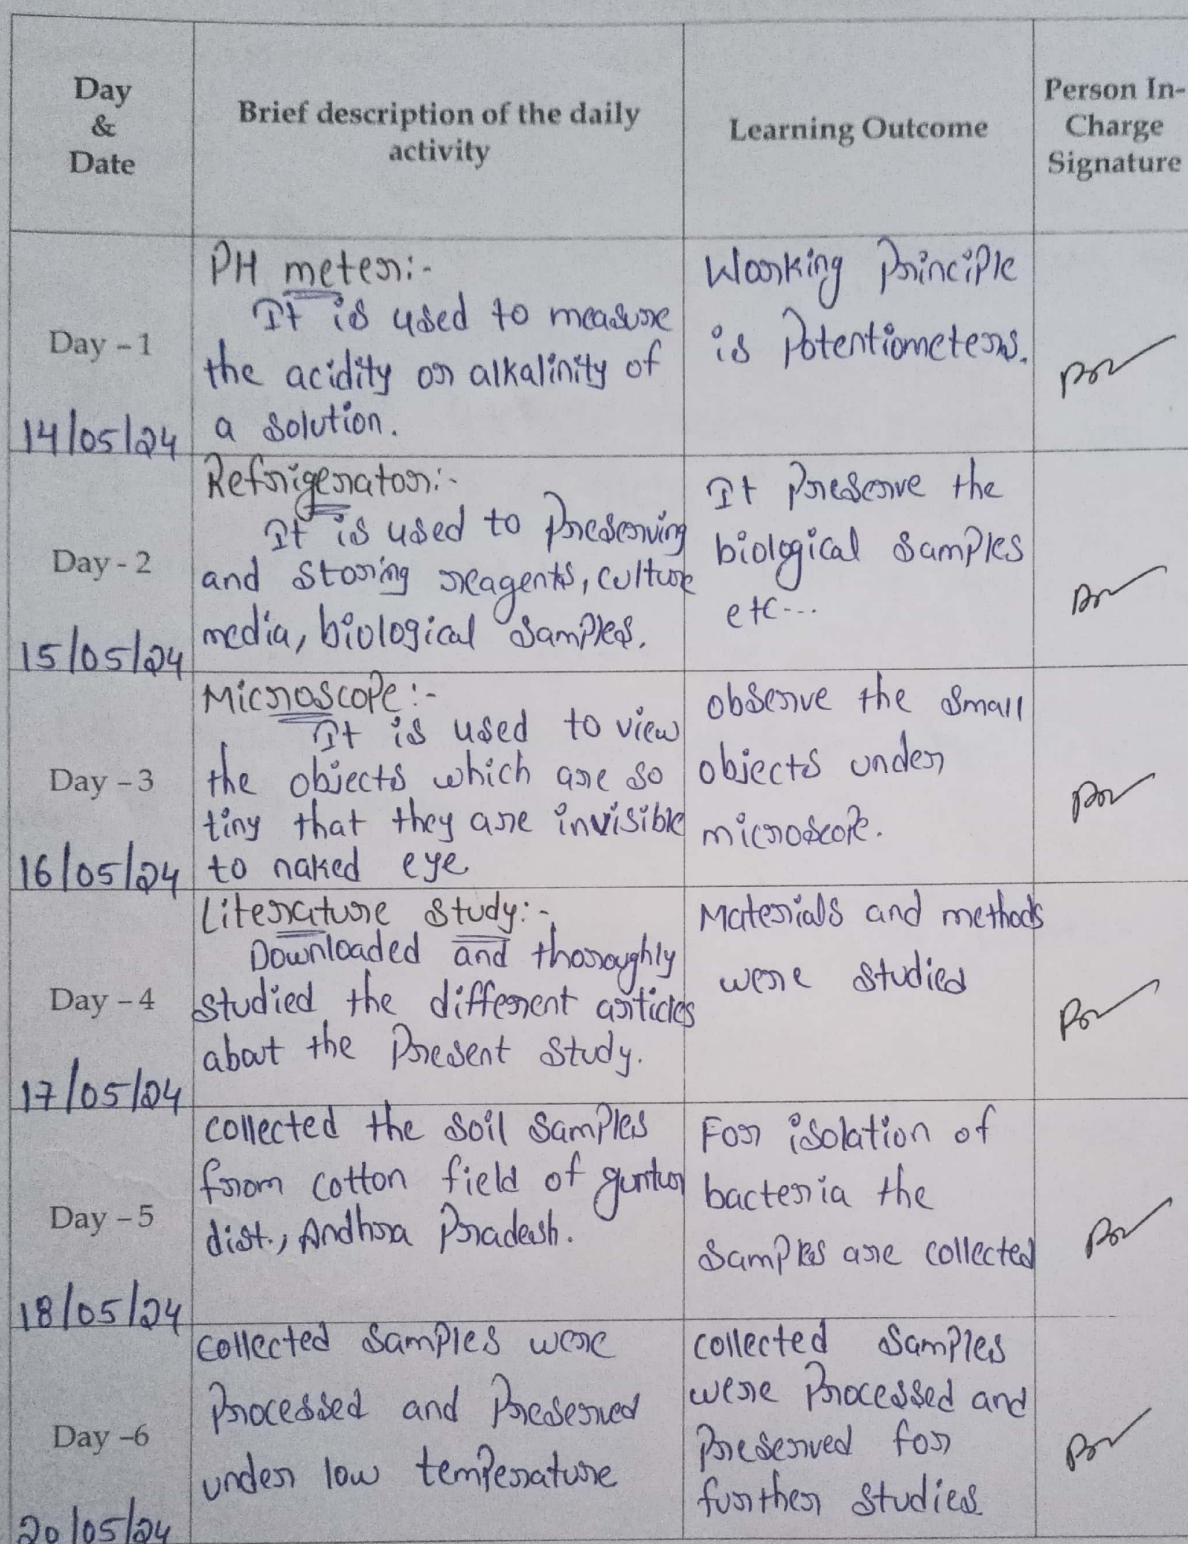 Day
&
Date
Brief description of the daily
activity
Learning Outcome
Person In-
Charge
Signature
Day - 1
14/05/24
PH meter:-
It is used to measure
the acidity or alkalinity of
a solution.
Working Principle
is Potentiometers.
Day - 2
15/05/24
Refrigerator:-
It is used to Preserving
and storing reagents, culture
media, biological samples.
It Preserve the
biological samples
etc...
Day - 3
16/05/24
Microscope:-
It is used to view
the objects which are so
tiny that they are invisible
to naked eye
observe the small
objects under
microscope.
Day - 4
17/05/24
Literature study:-
Downloaded and thoroughly
studied the different articles
about the Present study.
Materials and methods
were studied
Day - 5
18/05/24
collected the soil samples
from cotton field of guntur
dist., Andhra Pradesh.
For isolation of
bacteria the
samples are collected
Day -6
20/05/24
collected samples were
Processed and Preserved
under low temperature
collected samples
were Processed and
Preserved for
further studies